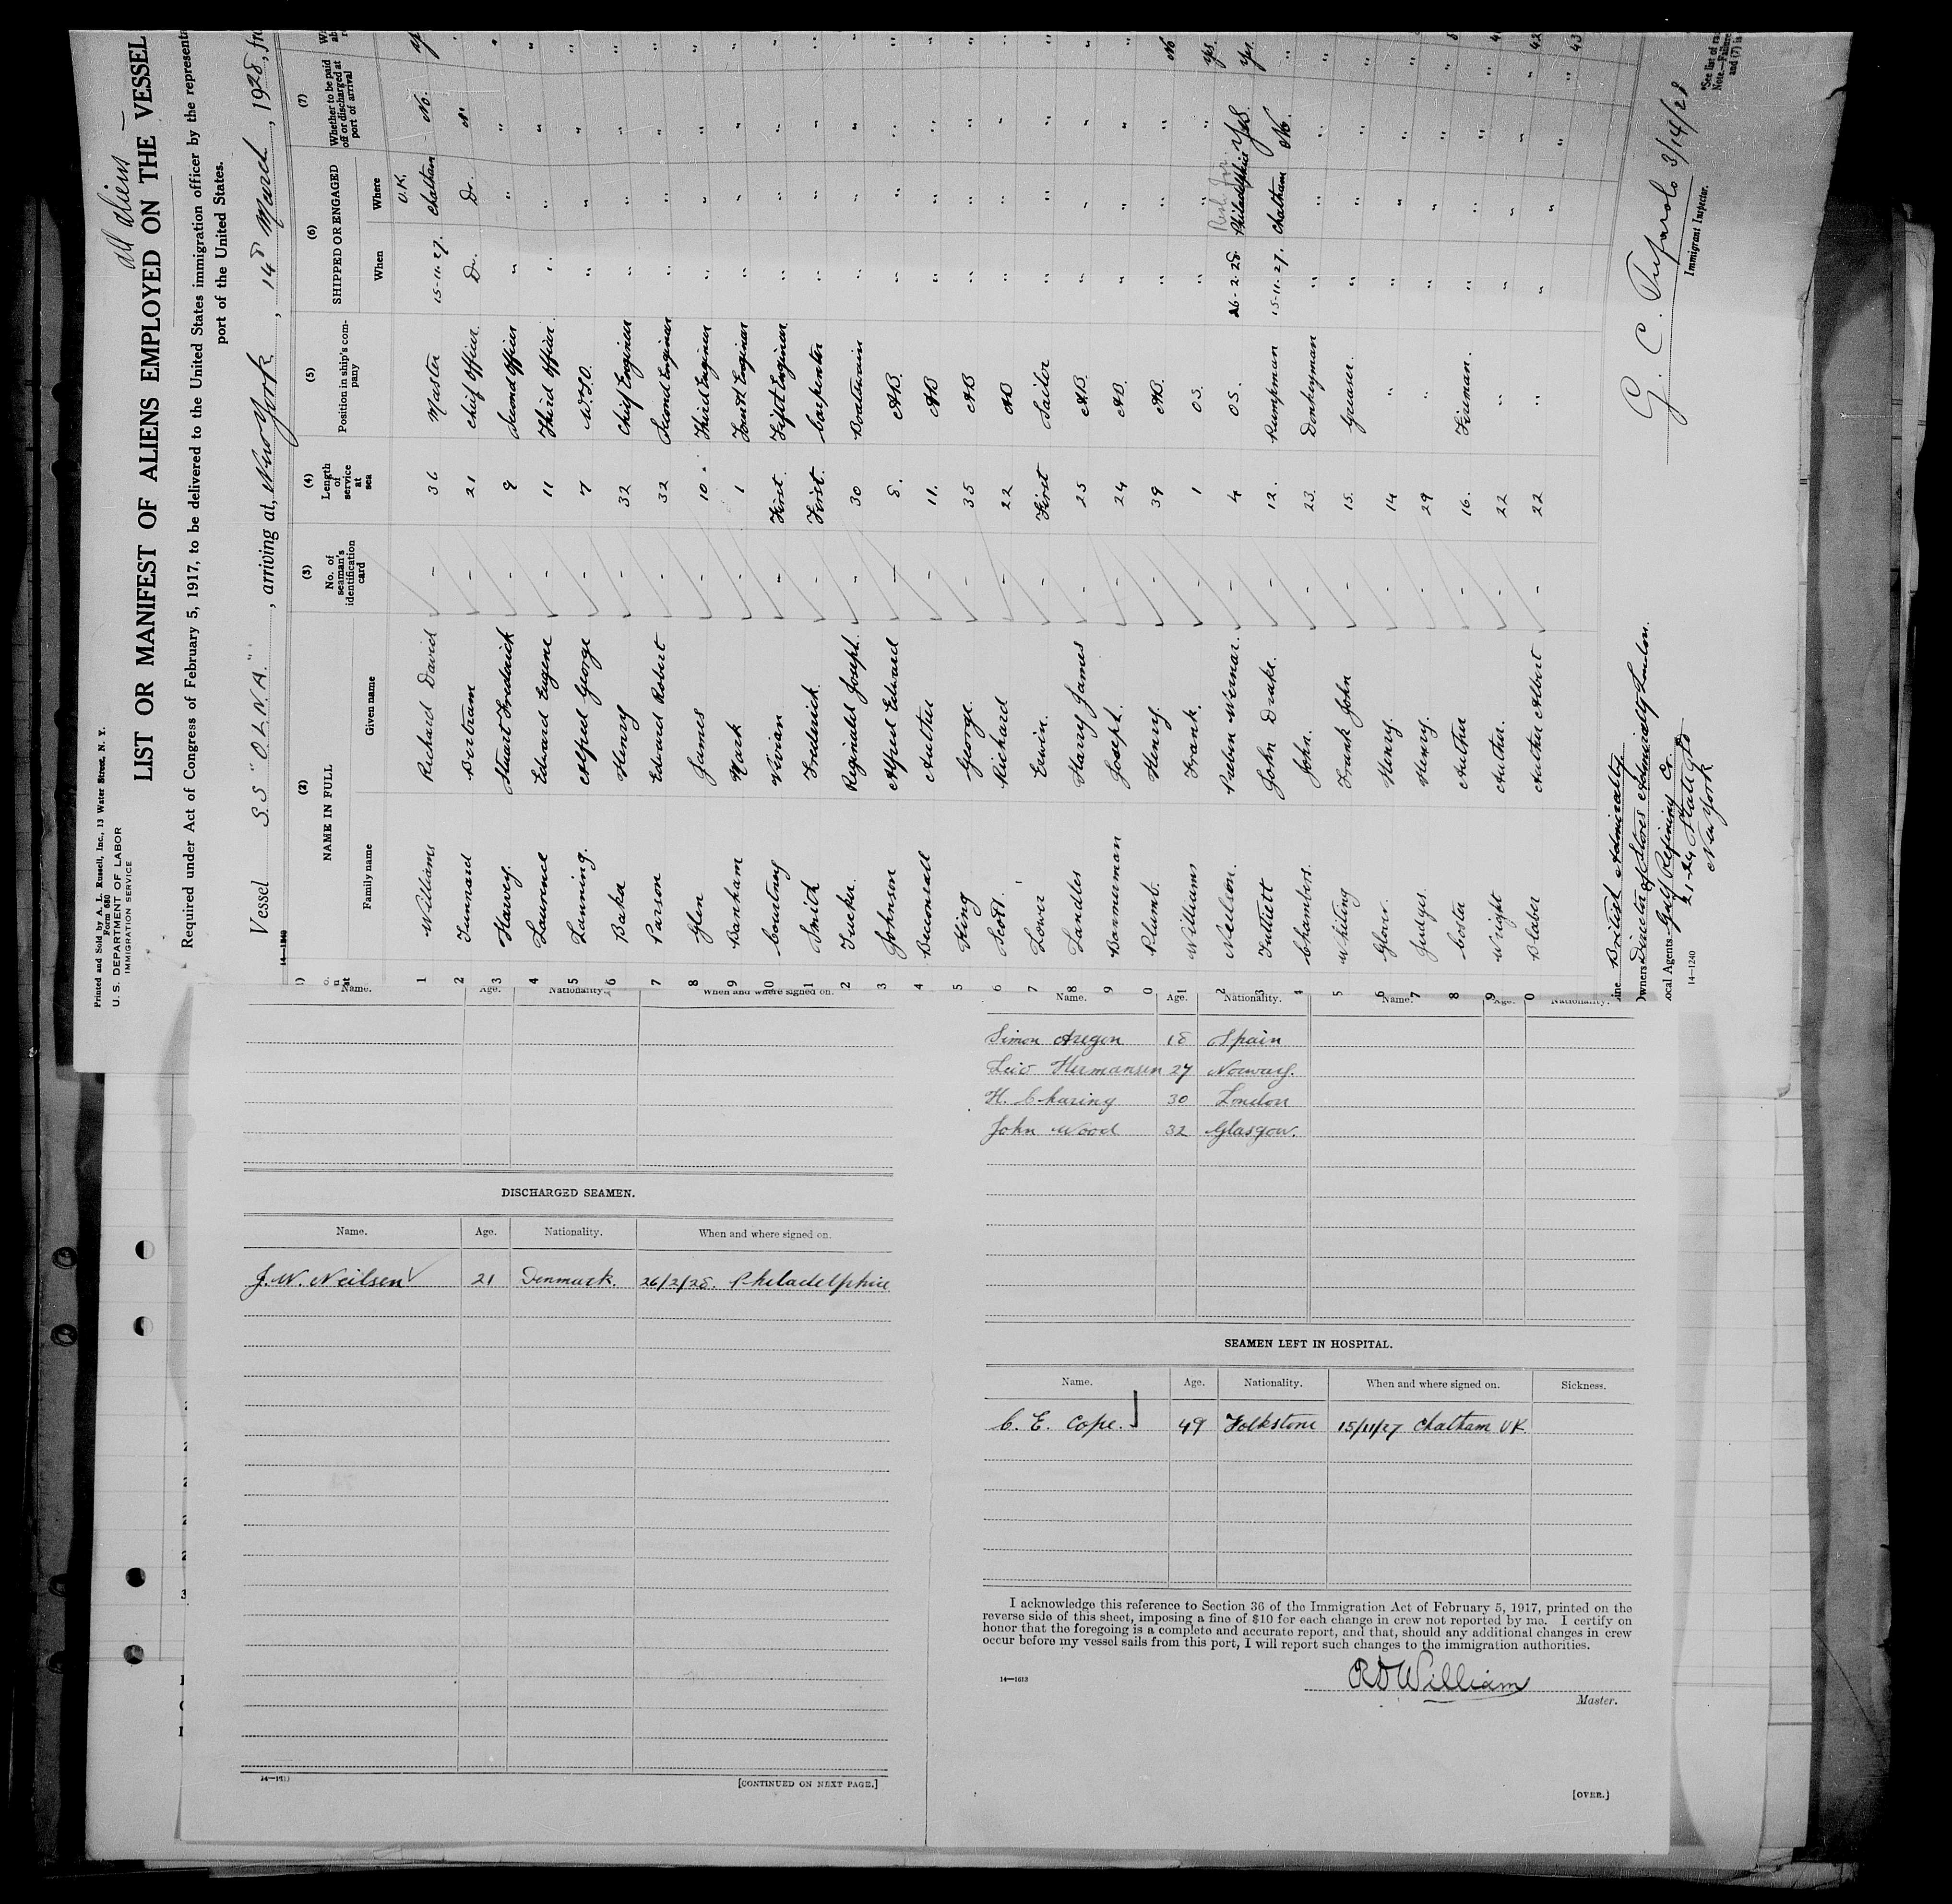 Printed and Sold by A. L. Russell, Inc., 13 Water Street, N. Y.
Form 680
U. S. DEPARTMENT OF LABOR
IMMIGRATION SERVICE
all aliens
LIST OR MANIFEST OF ALIENS EMPLOYED ON THE VESSEL
Required under Act of Congress of February 5, 1917, to be delivered to the United States immigration officer by the representa
port of the United States.
Vessel S.S "OLNA.", arriving at New York, 14th March, 1928, fro
14—1240
(2) (3) (4) (5) (6) (7)
NAME IN FULL No. of seaman's identification card Length of service at sea Position in ship's company SHIPPED OR ENGAGED Whether to be paid off or discharged at port of arrival
Family name Given name When Where
U.K.
1 Williams Richard David – 36 Master 15-11-27. Chatham No.
2 Tunnard Bertram – 21 Chief Officer. Do. Do. "
3 Hawey. Stuart Frederick – 9 Second Officer " " "
4 Laurence Edward Eugene – 11 Third Officer. " " "
5 Lanning. Alfred George – 7 W.T.O. " " "
6 Baker Henry – 32 Chief Engineer " " "
7 Parson Edward Robert – 32 Second Engineer " " "
8 Glen James – 10. Third Engineer " " "
9 Banham Mark – 1 Fourth Engineer " " "
0 Courtney Vivian – First. Fifth Engineer " " "
1 Smith Frederick. – First. Carpenter " " "
2 Tucker. Reginald Joseph. – 30 Boatswain " " "
3 Johnson Alfred Edward – 8. AB. " " "
4 Beconsall Arthur – 11. AB " " "
5 King George. – 35 AB " " "
6 Scott. Richard – 22 AB " " "
7 Lower Erwin. – First Sailor " " "
8 Sandles Harry James – 25 AB. " " "
9 Bannerman Joseph. – 24 AB. " " "
0 Plumb. Henry. – 39 AB. " " " No
1 Williams Frank. – 1 O.S. " " " Yes.
2 Neilson. – 4 O.S. 26-2-28. Philadelphia Yes. Yes.
3 Tutiett John Drake. – 12. Pumpman 15-11-27. Chatham No. "
4 Chambers. John. – 23. Donkeyman " " "
5 Whiting Frank John – 15. Greaser. " " "
6 Glover. Henry. – 14 " " " "
7 Judges. Henry. – 29 " " " "
8 Coster Arthur – 16. Fireman. " " "
9 Wright Arthur. – 22 " " " "
0 Blaber Arthur Albert – 22 " " " "
ine British Admiralty
Owners Director of Stores Admiralty London.
ocal Agents Gulf Refining Co.
21-24 State St
New York
14—1240
G. C. Tufarolo 3/14/28
Immigrant Inspector.
*See list of ra
Note.—Failure
and (7) is
Name. Age. Nationality. When and where signed on.
DISCHARGED SEAMEN.
Name. Age. Nationality. When and where signed on.
J. W. Neilsen 21 Denmark. 26/2/28. Philadelphia
14—1613
[CONTINUED ON NEXT PAGE.]
Name. Age. Nationality. Name. Age. Nationality.
Simon Aregon 18 Spain
Leiv Hermansen 27 Norway.
H. Charing 30 London
John Wood 32 Glasgow.
SEAMEN LEFT IN HOSPITAL.
Name. Age. Nationality. When and where signed on. Sickness.
C. E. Cope. 49 Folkstone 15/11/27 Chatham UK
I acknowledge this reference to Section 36 of the Immigration Act of February 5, 1917, printed on the
reverse side of this sheet, imposing a fine of $10 for each change in crew not reported by me. I certify on
honor that the foregoing is a complete and accurate report, and that, should any additional changes in crew
occur before my vessel sails from this port, I will report such changes to the immigration authorities.
14—1613
RD William
Master.
[OVER.]